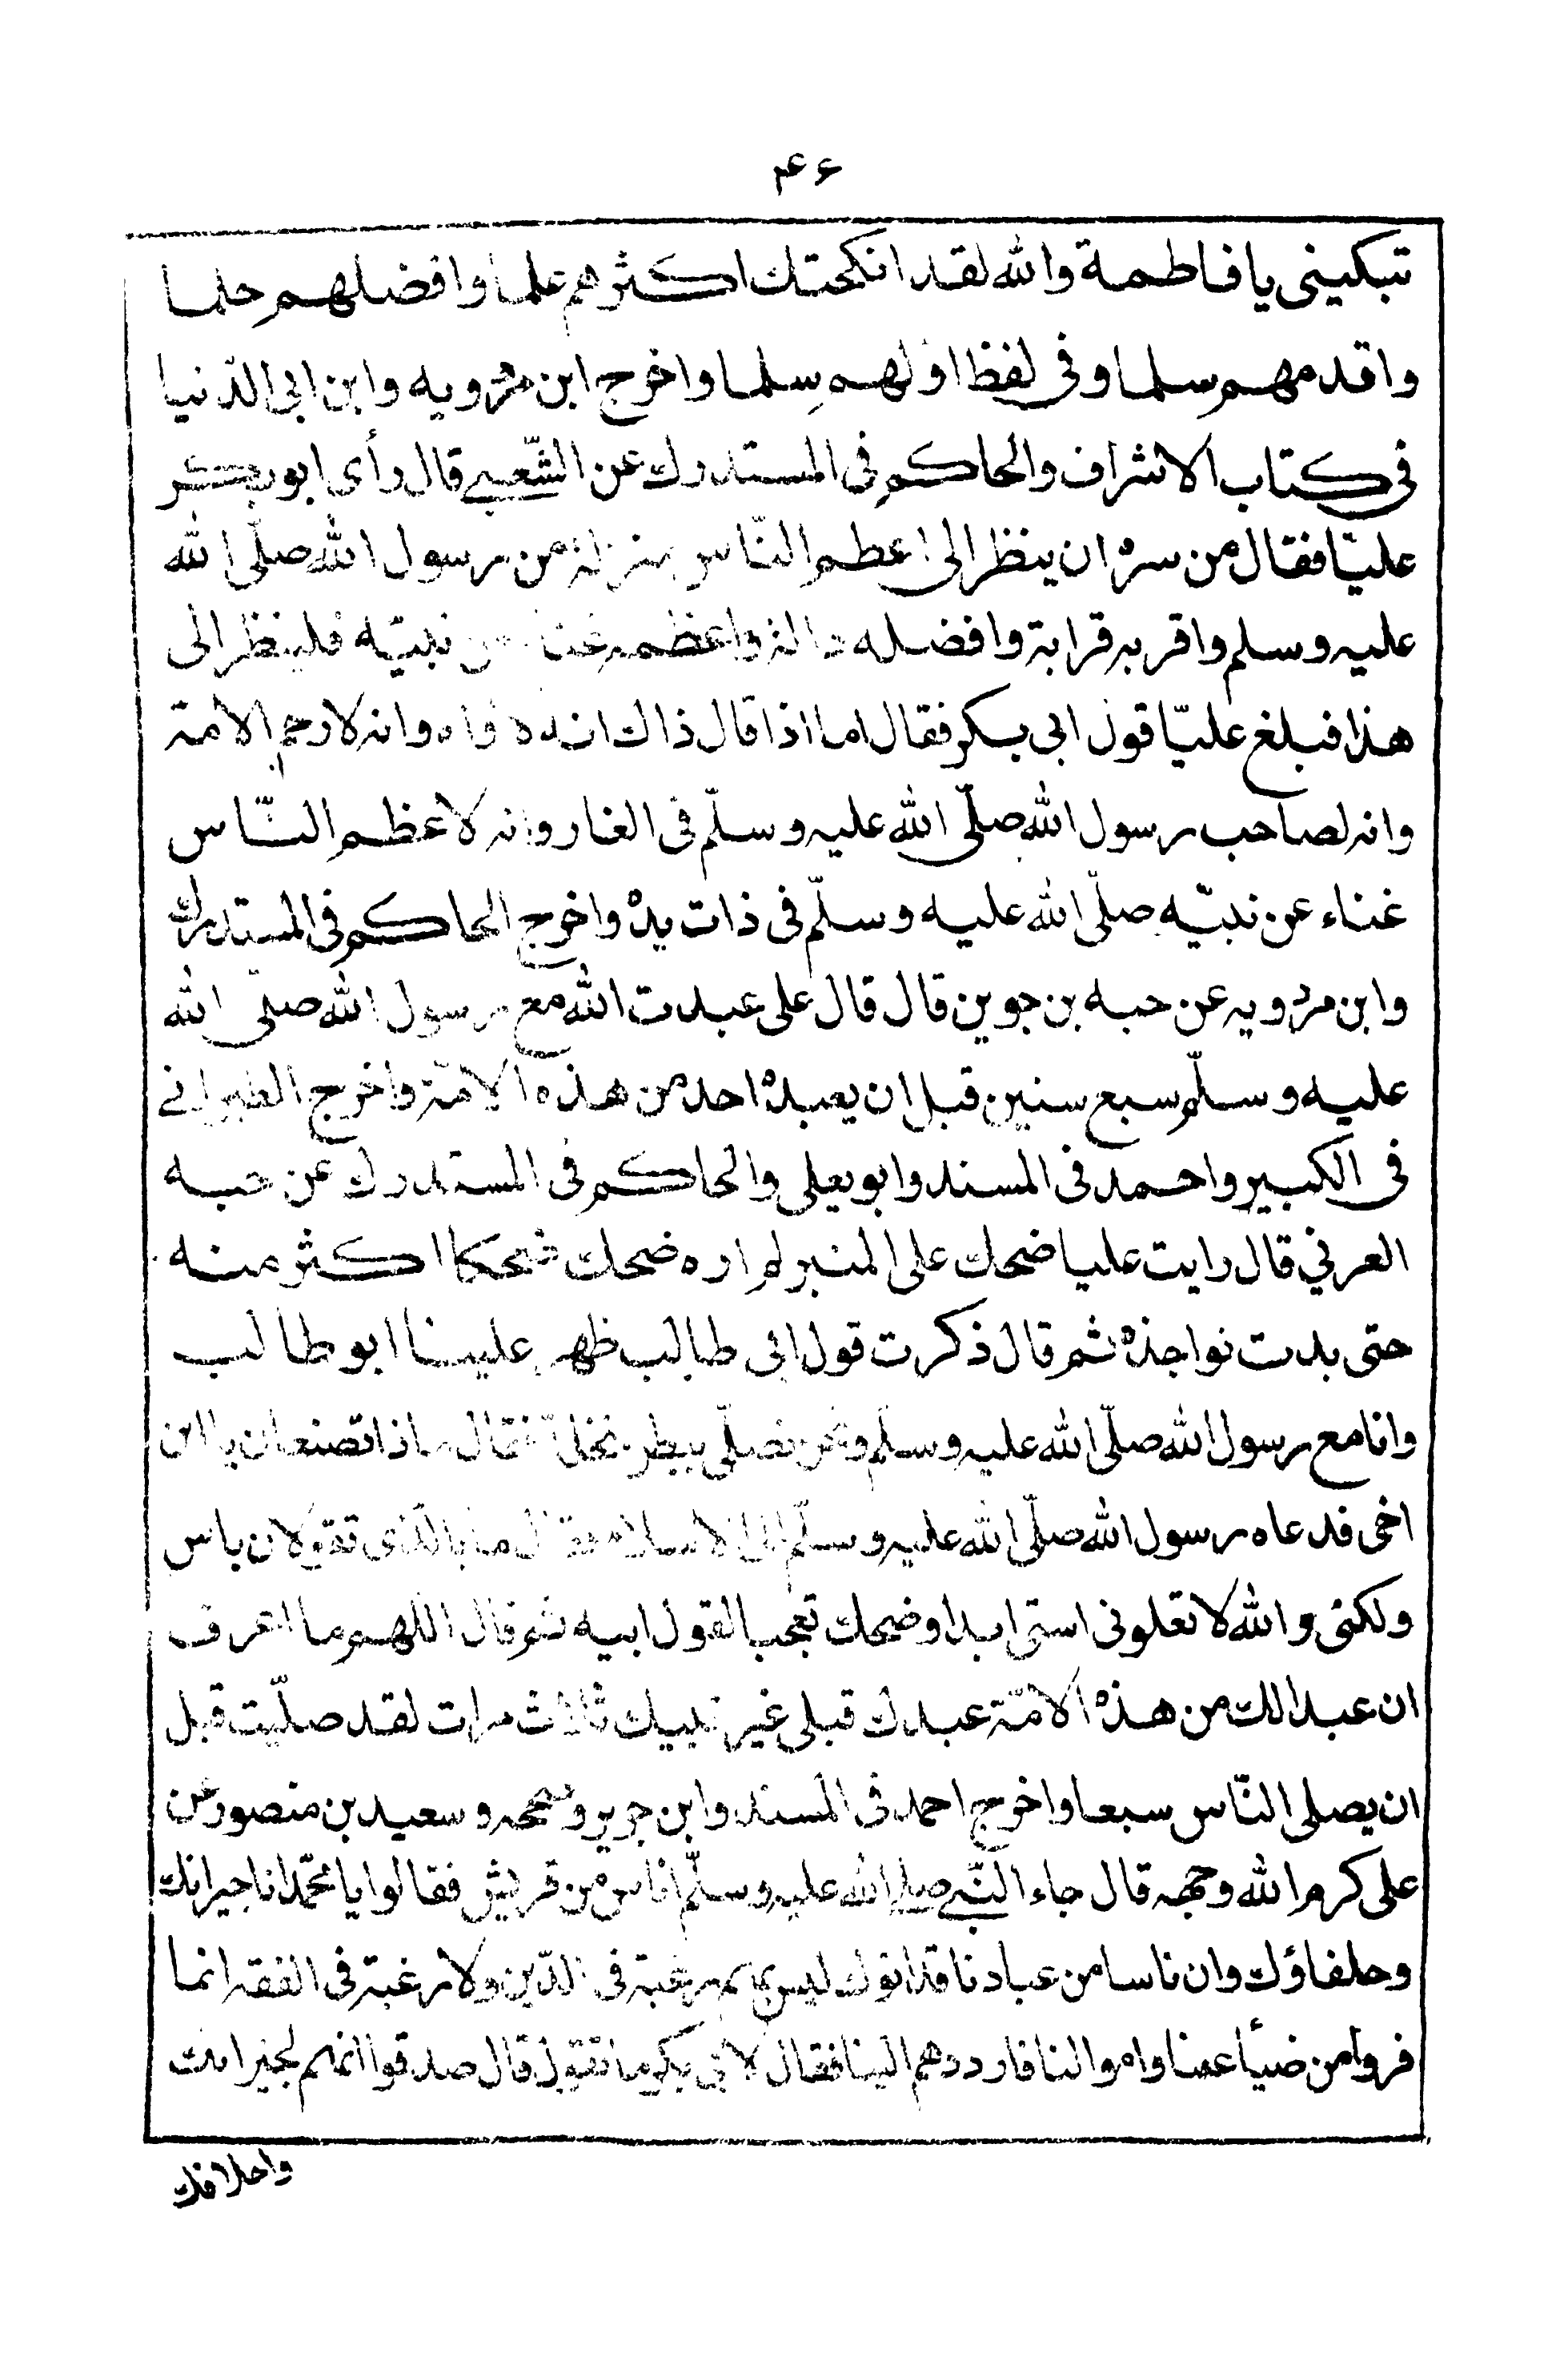 ۴۶
تبكينى يا فاطمة والله لقد انكحتك اكثرهم علما وافضلهم حلما
واقدمهم سلما وفى لفظ اوّلهم سِلما واخرج ابن مردويه وابن ابى الدّنيا
فى كتاب الاشراف والحاكم فى المستدرك عن الشّعبے قال رأى ابو بكر
عليّا فقال من سره ان ينظر الى اعظم النّاس منزلة من رسول الله صلّى الله
عليه وسلم واقربه قرابة وافضله دالة واعظمه غناء عن نبيّه فلينظر الى
هذا فبلغ عليّا قول ابى بكر فقال اما اذا قال ذاك انه لاواه وانه لارحم الامة
وانه لصاحب رسول الله صلّى الله عليه وسلّم فى الغار وانه لاعظم النّاس
غناء عن نبيّه صلّى الله عليه وسلّم فى ذات يده واخرج الحاكم فى المستدرك
وابن مردويه عن حبه بن جوين قال قال على عبدت الله مع رسول الله صلّى الله
عليه وسلّم سبع سنين قبل ان يعبده احد من هذه الامّة واخرج الطبرانے
فى الكبير واحمد فى المسند وابو يعلى والحاكم فى المستدرك عن حبه
العرني قال رايت عليا ضحك على المنبر لم اره ضحك ضحكا اكثر منه
حتى بدت نواجذه ثم قال ذكرت قول ابى طالب ظهر علينا ابو طالب
وانا مع رسول الله صلّى الله عليه وسلّم ونحن نصلّى ببطن نخلة فقال ماذا تصنعان يا ابن
اخى فدعاه رسول الله صلّى الله عليه وسلّم الى الاسلام فقال ما بالذى تقولان باس
ولكنى والله لا تعلونى استى ابدا وضحك تعجبا لقول ابيه ثم قال اللهم ما اعرف
ان عبدا لك من هذه الامّة عبدك قبلى غير نبيك ثلاث مرات لقد صلّيت قبل
ان يصلى النّاس سبعا واخرج احمد فى المسند وابن جرير وصححه وسعيد بن منصور عن
على كرم الله وجهه قال جاء النّبے صلے الله عليه وسلّم اناس من قريش فقالوا يا محمّد انا جيرانك
وحلفاؤك وان ناسا من عبادنا قد اتوك ليس بهم رغبة فى الدّين ولا رغبة فى الفقه انما
فروا من ضياعنا واموالنا فارددهم الينا فقال لابى بكر ما تقول قال صدقوا انهم لجيرانك
واحلافك